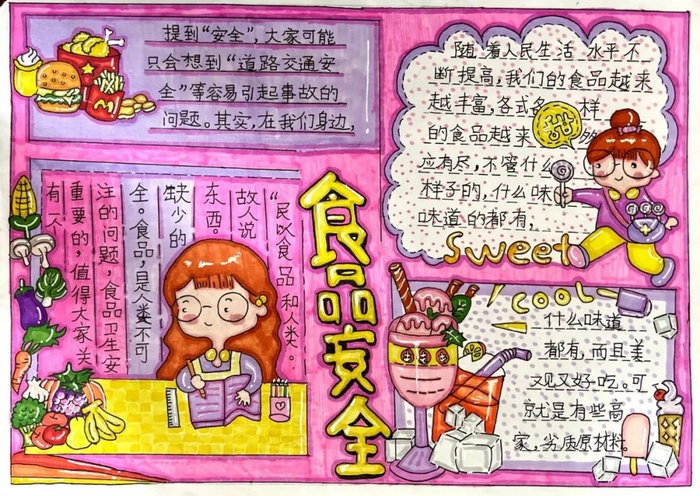 提到“安全”,大家可能
只会想到“道路交通安
全”等容易引起事故的
问题。其实,在我们身边,
有不
重要的,值得大家关
注的问题,食品卫生安
全。食品,是人类不可
缺少的
东西。
故人说
“民以食品 和人类。
食品安全
随着人民生活 水平不
断提高,我们的食品越来
越丰富,各式各 样
的食品越来 够
甜
应有尽,不管什么
样子的,什么味
味道的都有,
Sweet
cool
什么味道
都有,而且美
又见又好吃。可
就是有些高
家,劣质原材料。